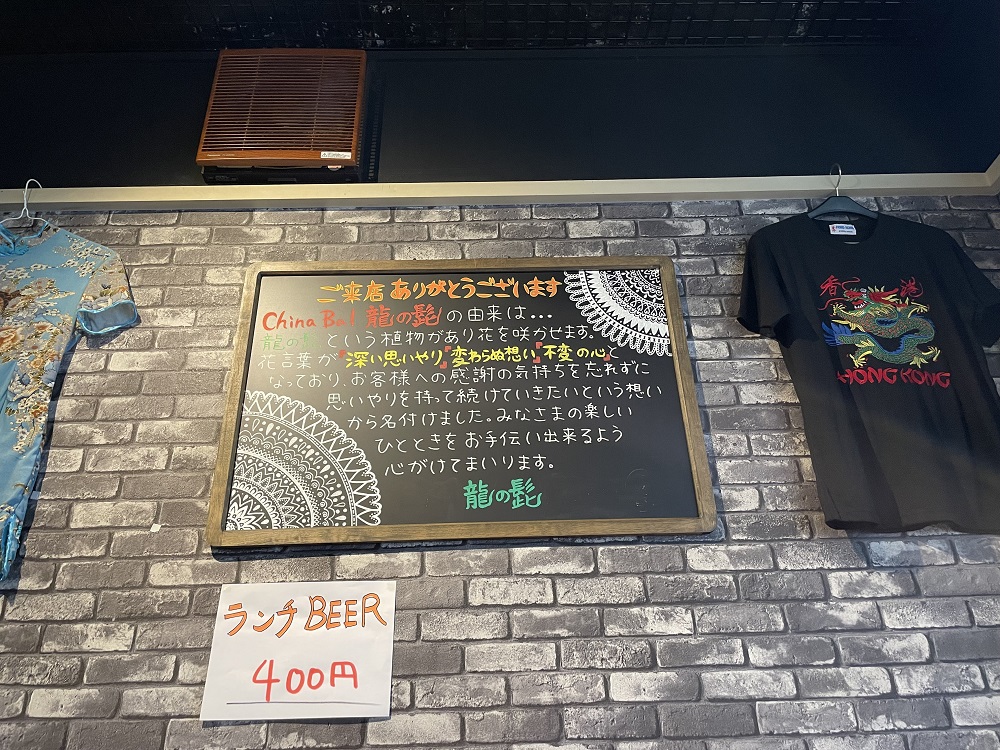 ご来店ありがとうございます
China Bal 龍の髭の由来は...
龍の髭という植物があり花を咲かせます。
花言葉が『深い思いやり』『変わらぬ想い』『不変の心』と
なっており、お客様への感謝の気持ちを忘れずに
思いやりを持って続けていきたいという想い
から名付けました。みなさまの楽しい
ひとときをお手伝い出来るよう
心がけてまいります。
龍の髭
香港
HONG KONG
ランチBEER
400円